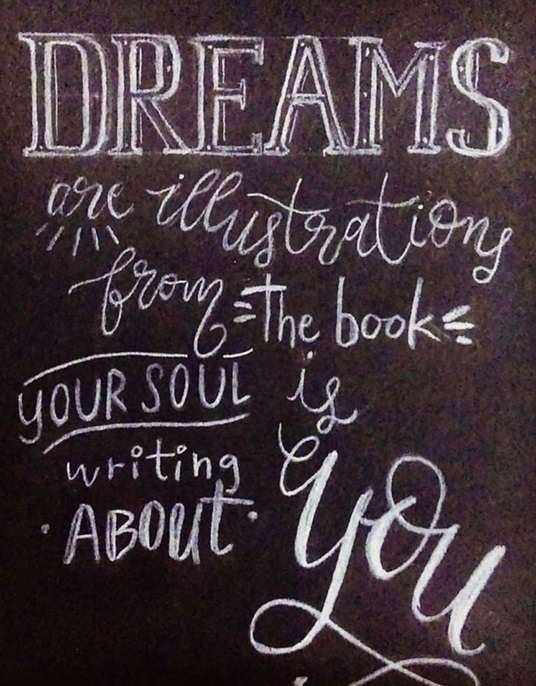 DREAMS
are illustrations
from the book
YOUR SOUL is
writing
ABOUt you